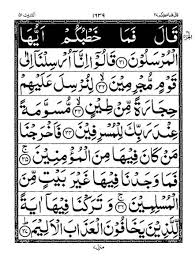 ١٢٣٩
قَالَ فَمَا خَطْبُكُمْ اَيُّهَا
الْمُرْسَلُوْنَ ﴿۳۱﴾ قَالُوْۤا اِنَّاۤ اُرْسِلْنَاۤ اِلٰى
قَوْمٍ مُّجْرِمِيْنَ ﴿۳۲﴾ لِنُرْسِلَ عَلَيْهِمْ
حِجَارَةً مِّنْ طِيْنٍ ﴿۳۳﴾ مُّسَوَّمَةً عِنْدَ
رَبِّكَ لِلْمُسْرِفِيْنَ ﴿۳۴﴾ فَاَخْرَجْنَا
مَنْ كَانَ فِيْهَا مِنَ الْمُؤْمِنِيْنَ ﴿۳۵﴾
فَمَا وَجَدْنَا فِيْهَا غَيْرَ بَيْتٍ مِّنَ
الْمُسْلِمِيْنَ ﴿۳۶﴾ وَتَرَكْنَا فِيْهَاۤ اٰيَةً
لِّلَّذِيْنَ يَخَافُوْنَ الْعَذَابَ الْاَلِيْمَ ﴿۳۷﴾